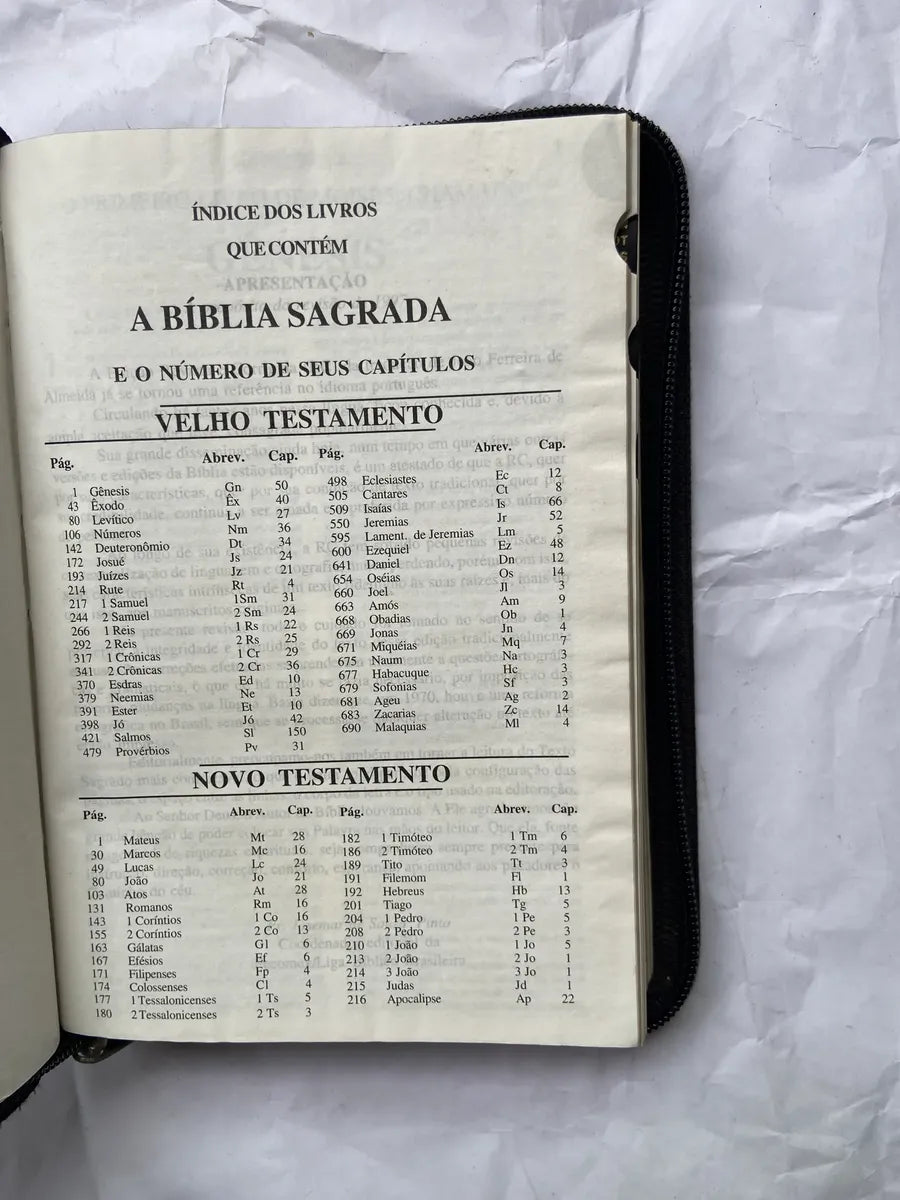 ÍNDICE DOS LIVROS
QUE CONTÉM
APRESENTAÇÃO
A BÍBLIA SAGRADA
E O NÚMERO DE SEUS CAPÍTULOS
VELHO TESTAMENTO
Pág. Abrev. Cap.
1 Gênesis Gn 50
43 Êxodo Êx 40
80 Levítico Lv 27
106 Números Nm 36
142 Deuteronômio Dt 34
172 Josué Js 24
193 Juízes Jz 21
214 Rute Rt 4
217 1 Samuel 1Sm 31
244 2 Samuel 2 Sm 24
266 1 Reis 1 Rs 22
292 2 Reis 2 Rs 25
317 1 Crônicas 1 Cr 29
341 2 Crônicas 2 Cr 36
370 Esdras Ed 10
379 Neemias Ne 13
391 Ester Et 10
398 Jó Jó 42
421 Salmos Sl 150
479 Provérbios Pv 31
Pág. Abrev. Cap.
498 Eclesiastes Ec 12
505 Cantares Ct 8
509 Isaías Is 66
550 Jeremias Jr 52
595 Lament. de Jeremias Lm 5
600 Ezequiel Ez 48
641 Daniel Dn 12
654 Oséias Os 14
660 Joel Jl 3
663 Amós Am 9
668 Obadias Ob 1
669 Jonas Jn 4
671 Miquéias Mq 7
675 Naum Na 3
677 Habacuque Hc 3
679 Sofonias Sf 3
681 Ageu Ag 2
683 Zacarias Zc 14
690 Malaquias Ml 4
NOVO TESTAMENTO
Pág. Abrev. Cap.
1 Mateus Mt 28
30 Marcos Mc 16
49 Lucas Lc 24
80 João Jo 21
103 Atos At 28
131 Romanos Rm 16
143 1 Coríntios 1 Co 16
155 2 Coríntios 2 Co 13
163 Gálatas Gl 6
167 Efésios Ef 6
171 Filipenses Fp 4
174 Colossenses Cl 4
177 1 Tessalonicenses 1 Ts 5
180 2 Tessalonicenses 2 Ts 3
Pág. Abrev. Cap.
182 1 Timóteo 1 Tm 6
186 2 Timóteo 2 Tm 4
189 Tito Tt 3
191 Filemom Fl 1
192 Hebreus Hb 13
201 Tiago Tg 5
204 1 Pedro 1 Pe 5
208 2 Pedro 2 Pe 3
210 1 João 1 Jo 5
213 2 João 2 Jo 1
214 3 João 3 Jo 1
215 Judas Jd 1
216 Apocalipse Ap 22